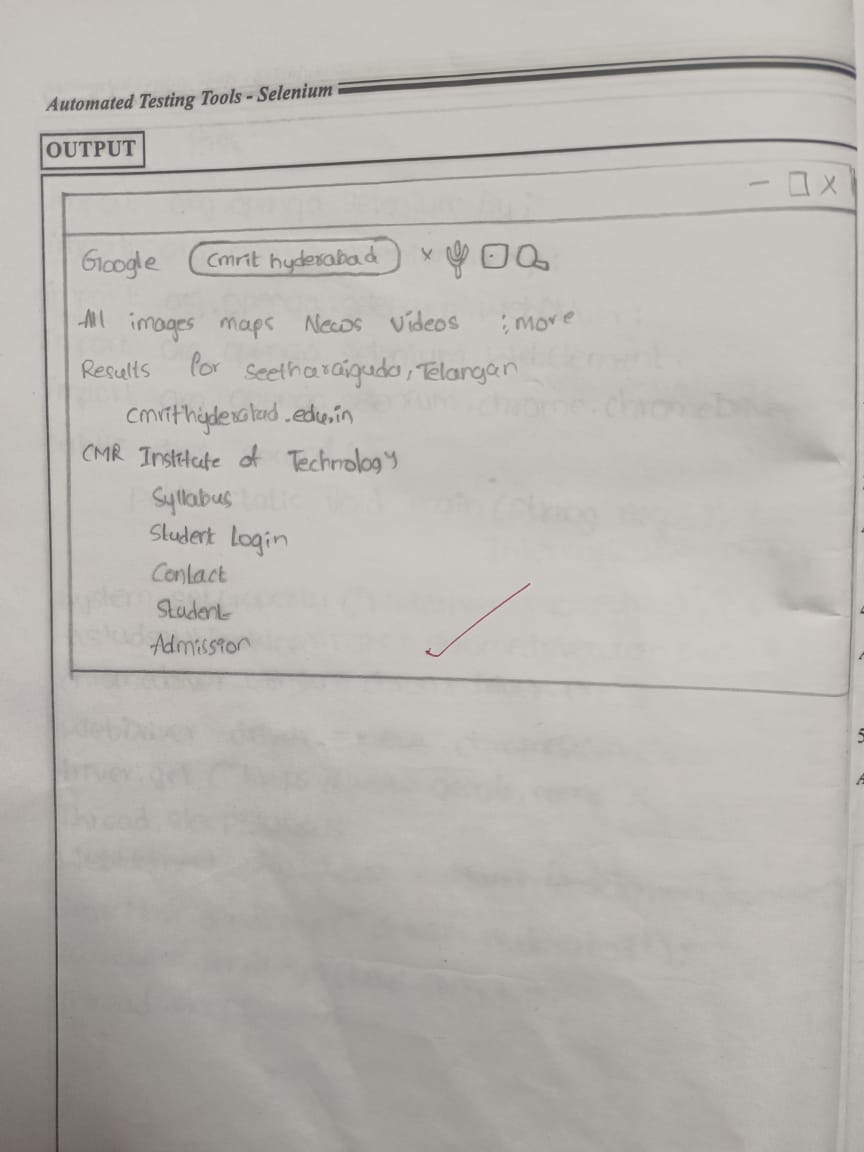 Automated Testing Tools - Selenium
OUTPUT
Google cmrit hyderabad x
All images maps News Videos : more
Results for seetharaiguda, Telangan
cmrithyderabad.edu.in
CMR Institute of Technology
Syllabus
Student Login
Contact
Student
Admission